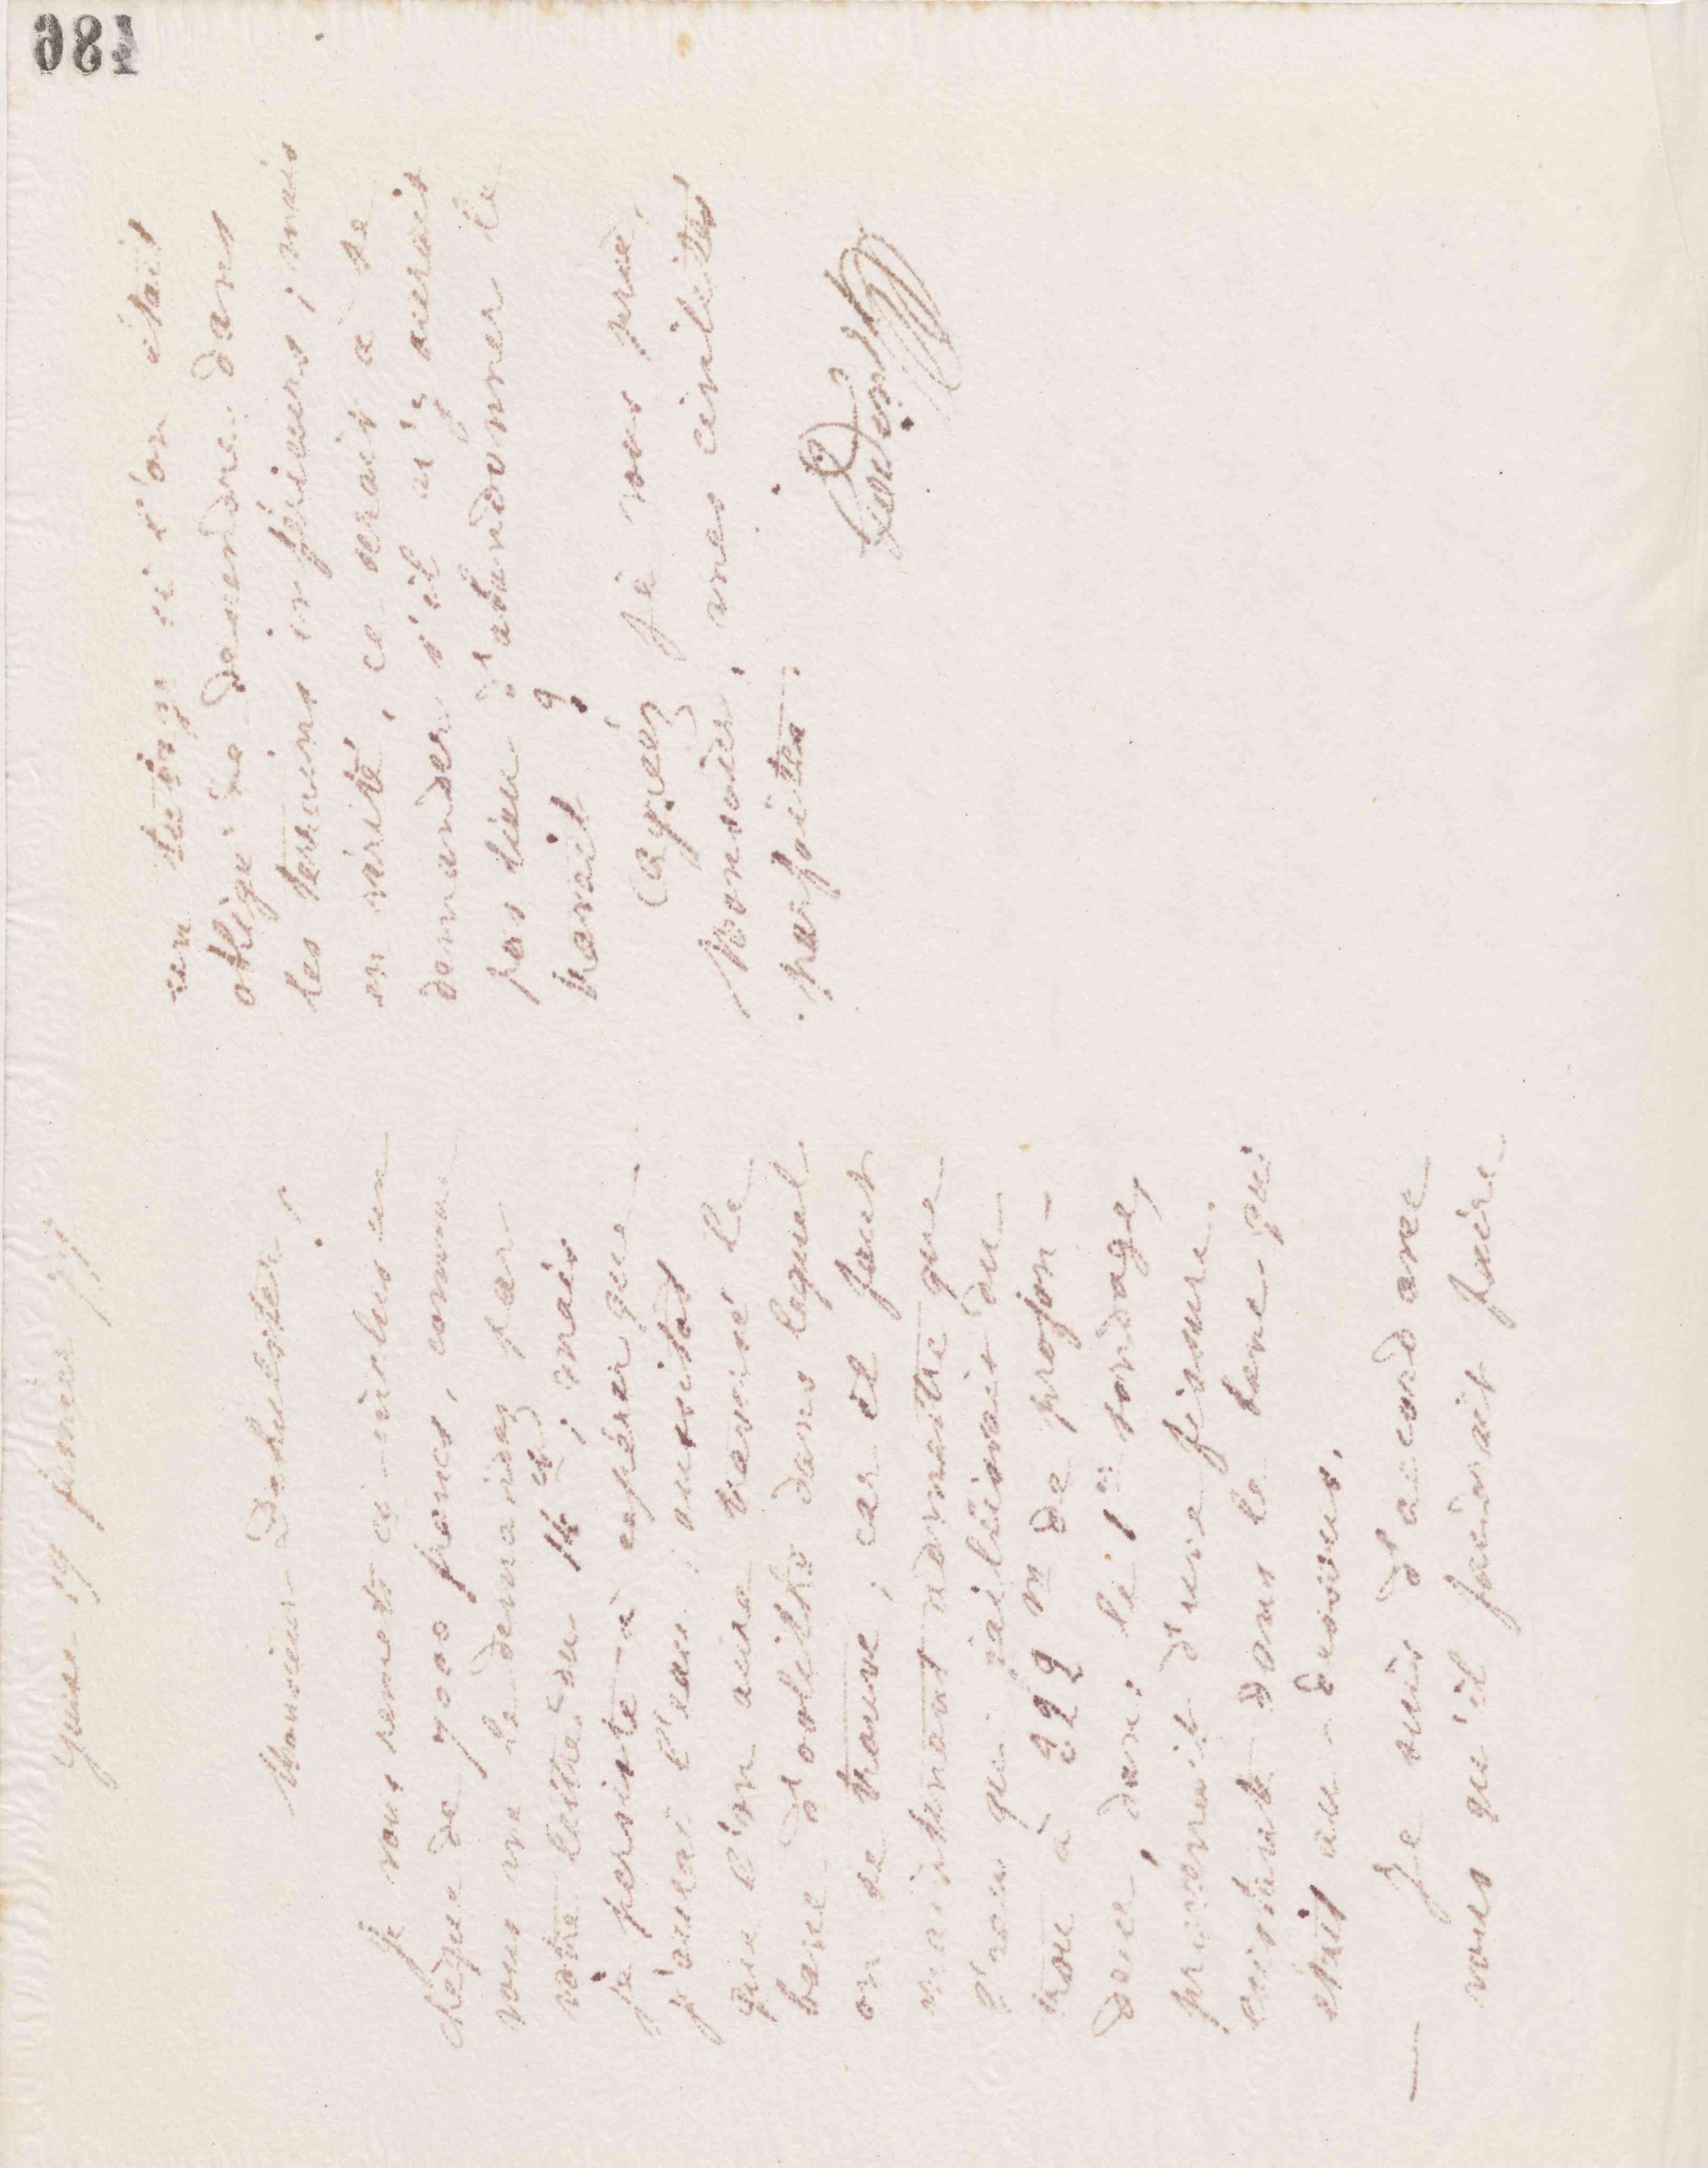 180
Guise 19 janvier 77
Monsieur Dehulster,
Je vous remets ci-inclus un
chèque de 7000 francs, comme
vous me le demandez par
votre lettre du 16 ct; mais
je persiste à espérer que
j'aurai l'eau aussitôt
que l'on aura traversé le
banc d'oolithe dans lequel
on se trouve; car il faut
maintenant admettre que
l'eau qui jaillissait du
trou à 222 m de profon-
deur, dans le 1er sondage,
provenait d'une fissure
existante dans le banc qui
était au-dessous.
— Je suis d'accord avec
vous qu'il faudrait faire
un tubage si l'on était
obligé de descendre dans
les terrains inférieurs; mais
en vérité, ce serait à se
demander s'il n'y aurait
pas lieu d'abandonner le
travail ?
Agréez, je vous prie,
Monsieur, mes civilités
parfaites.
Godin